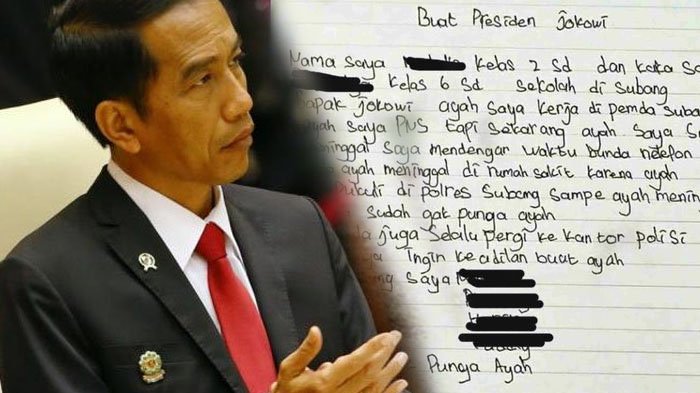 Buat Presiden Jokowi
Nama saya kelas 2 Sd dan kaka Sa
kelas 6 Sd sekolah di Subang
bapak jokowi ayah saya kerja di pemda Suba
saya PNS tapi sekarang ayah saya S
ninggal saya mendengar waktu bunda nelefon
ayah meninggal di rumah sakit karena ayah
di polres Subang sampe ayah menin
sudah gak punga ayah
juga selalu pergi ke kantor polisi
ingin keadilan buat ayah
saya
Punga Ayah